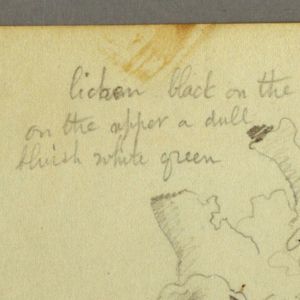 lichen black on the
on the upper a dull
bluish white green